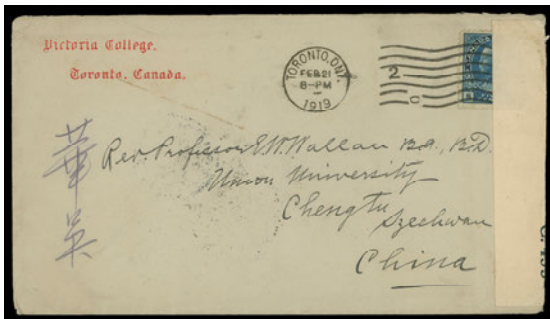 Victoria College,
Toronto, Canada.
TORONTO, ONT.
FEB 21
6-PM
1919
2
Rev. Professor E.W. Wallace B.A., B.D.
Union University
Chengtu
Szechwan
China
華英